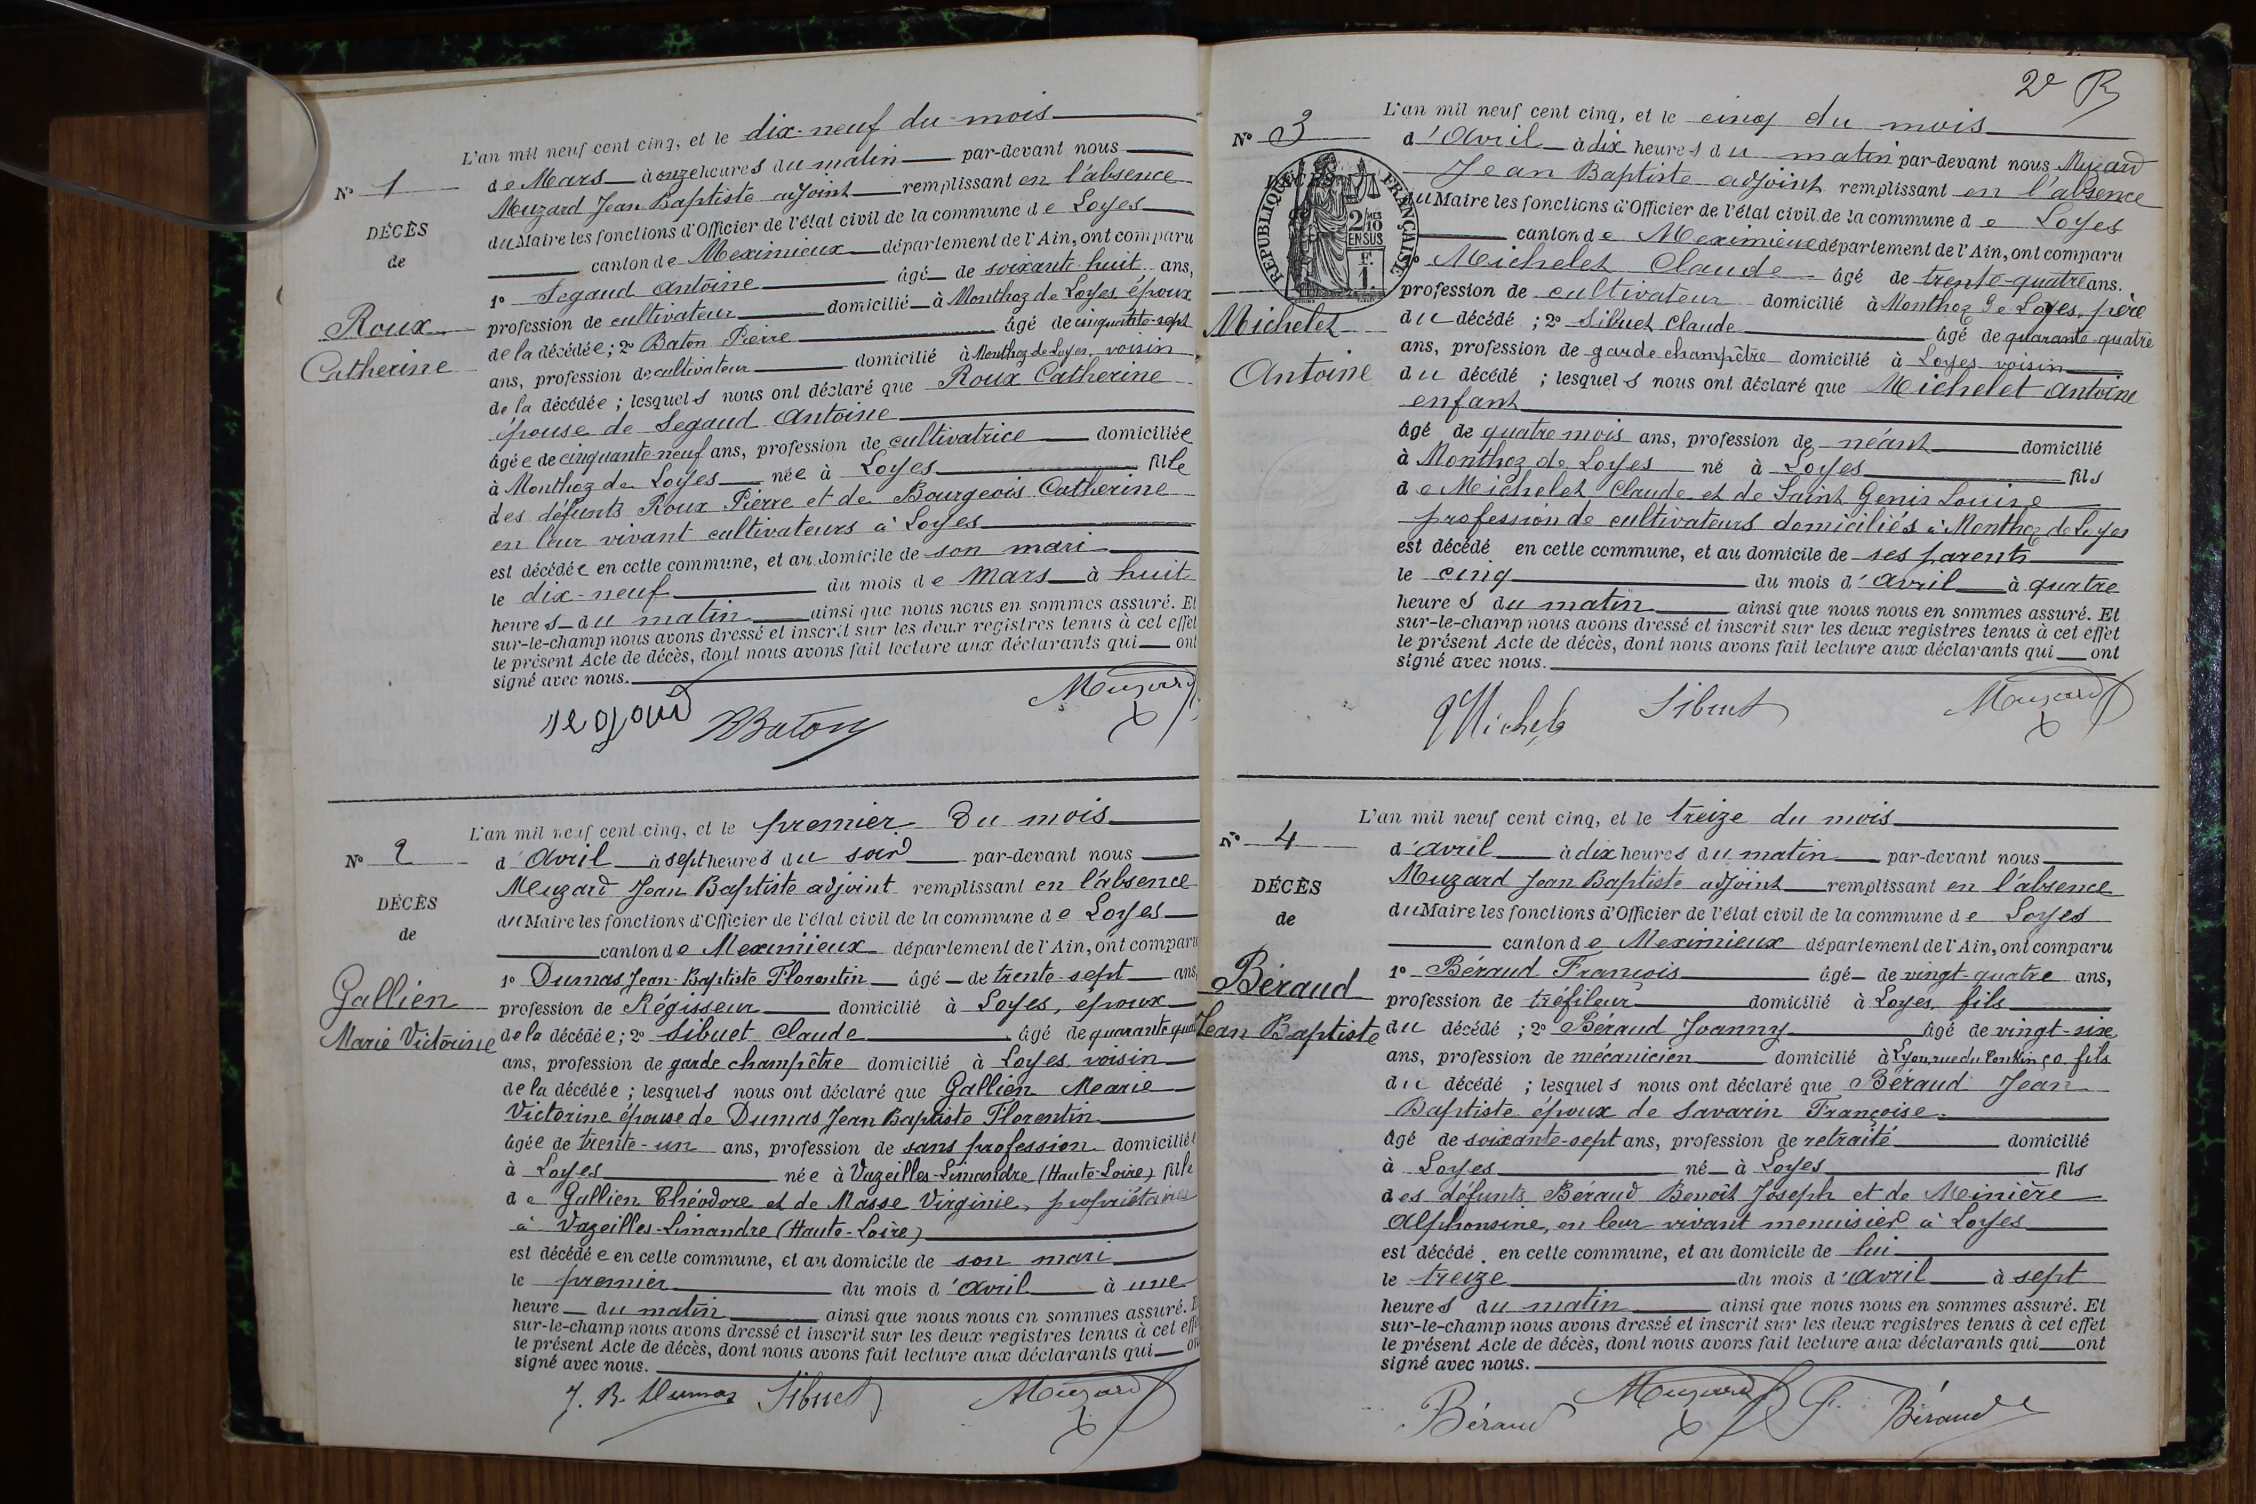 L'an mil neuf cent cinq, et le dix-neuf du mois
N° 1
de Mars à onze heures du matin par-devant nous
Muzard Jean Baptiste adjoint remplissant en l'absence
DÉCÈS
du Maire les fonctions d'Officier de l'état civil de la commune de Loyes
de
canton de Meximieux département de l'Ain, ont comparu
1° Segaud Antoine âgé de soixante huit ans,
Roux
profession de cultivateur domicilié à Monthoz de Loyes, époux
de la décédée ; 2° Baton Pierre âgé de cinquante-sept
Catherine
ans, profession de cultivateur domicilié à Monthoz de Loyes, voisin
de la décédée ; lesquels nous ont déclaré que Roux Catherine
épouse de Segaud Antoine
âgée de cinquante-neuf ans, profession de cultivatrice domiciliée
à Monthoz de Loyes née à Loyes fille
des défunts Roux Pierre et de Bourgeois Catherine
en leur vivant cultivateurs à Loyes
est décédée en cette commune, et au domicile de son mari
le dix-neuf du mois de Mars à huit
heures du matin ainsi que nous nous en sommes assuré. Et
sur-le-champ nous avons dressé et inscrit sur les deux registres tenus à cet effet
le présent Acte de décès, dont nous avons fait lecture aux déclarants qui ont
signé avec nous.
Segaud Baton Muzard
L'an mil neuf cent cinq, et le premier du mois
N° 2
d'Avril à sept heures du soir par-devant nous
Muzard Jean Baptiste adjoint remplissant en l'absence
DÉCÈS
du Maire les fonctions d'Officier de l'état civil de la commune de Loyes
de
canton de Meximieux département de l'Ain, ont comparu
1° Dumas Jean-Baptiste Florentin âgé de trente-sept ans,
Gallien
profession de Régisseur domicilié à Loyes, époux
Marie Victorine
de la décédée ; 2° Sibuet Claude âgé de quarante quat
ans, profession de garde champêtre domicilié à Loyes, voisin
de la décédée ; lesquels nous ont déclaré que Gallien Marie
Victorine épouse de Dumas Jean Baptiste Florentin
âgée de trente-un ans, profession de sans profession domiciliée
à Loyes née à Vazeilles-Limandre (Haute-Loire) fille
de Gallien Théodore et de Masse Virginie, propriétaires
à Vazeilles-Limandre (Haute-Loire)
est décédée en cette commune, et au domicile de son mari
le premier du mois d'avril à une
heure du matin ainsi que nous nous en sommes assuré. E
sur-le-champ nous avons dressé et inscrit sur les deux registres tenus à cet effe
le présent Acte de décès, dont nous avons fait lecture aux déclarants qui on
signé avec nous.
J. B. Dumas Sibuet Muzard
2e
L'an mil neuf cent cinq, et le cinq du mois
N° 3
d'Avril à dix heures du matin par-devant nous Muzard
Jean Baptiste adjoint remplissant en l'absence
du Maire les fonctions d'Officier de l'état civil de la commune de Loyes
RÉPUBLIQUE FRANÇAISE
2/10 EN SUS
F. 1.
canton de Meximieux département de l'Ain, ont comparu
1° Michelet Claude âgé de trente-quatre ans,
profession de cultivateur domicilié à Monthoz de Loyes, père
Michelet
du décédé ; 2° Sibuet Claude âgé de quarante-quatre
ans, profession de garde champêtre domicilié à Loyes voisin
Antoine
du décédé ; lesquels nous ont déclaré que Michelet Antoine
enfant
âgé de quatre mois ans, profession de néant domicilié
à Monthoz de Loyes né à Loyes fils
de Michelet Claude et de Saint Genis Louise
profession de cultivateurs domiciliés à Monthoz de Loyes
est décédé en cette commune, et au domicile de ses parents
le cinq du mois d'avril à quatre
heures du matin ainsi que nous nous en sommes assuré. Et
sur-le-champ nous avons dressé et inscrit sur les deux registres tenus à cet effet
le présent Acte de décès, dont nous avons fait lecture aux déclarants qui ont
signé avec nous.
Sibuet Muzard
L'an mil neuf cent cinq, et le treize du mois
N° 4
d'avril à dix heures du matin par-devant nous
Muzard Jean Baptiste adjoint remplissant en l'absence
DÉCÈS
du Maire les fonctions d'Officier de l'état civil de la commune de Loyes
de
canton de Meximieux département de l'Ain, ont comparu
1° Béraud François âgé de vingt-quatre ans,
Béraud
profession de tréfileur domicilié à Loyes, fils
Jean Baptiste
du décédé ; 2° Béraud Joanny âgé de vingt-six
ans, profession de mécanicien domicilié à Lyon, rue du Tonkin fils
du décédé ; lesquels nous ont déclaré que Béraud Jean
Baptiste époux de Savarin Françoise
âgé de soixante-sept ans, profession de retraité domicilié
à Loyes né à Loyes fils
des défunts Béraud Benoît Joseph et de Meinière
Alphonsine, en leur vivant menuisier à Loyes
est décédé en cette commune, et au domicile de lui
le treize du mois d'avril à sept
heures du matin ainsi que nous nous en sommes assuré. Et
sur-le-champ nous avons dressé et inscrit sur les deux registres tenus à cet effet
le présent Acte de décès, dont nous avons fait lecture aux déclarants qui ont
signé avec nous.
Béraud Muzard F. Béraud